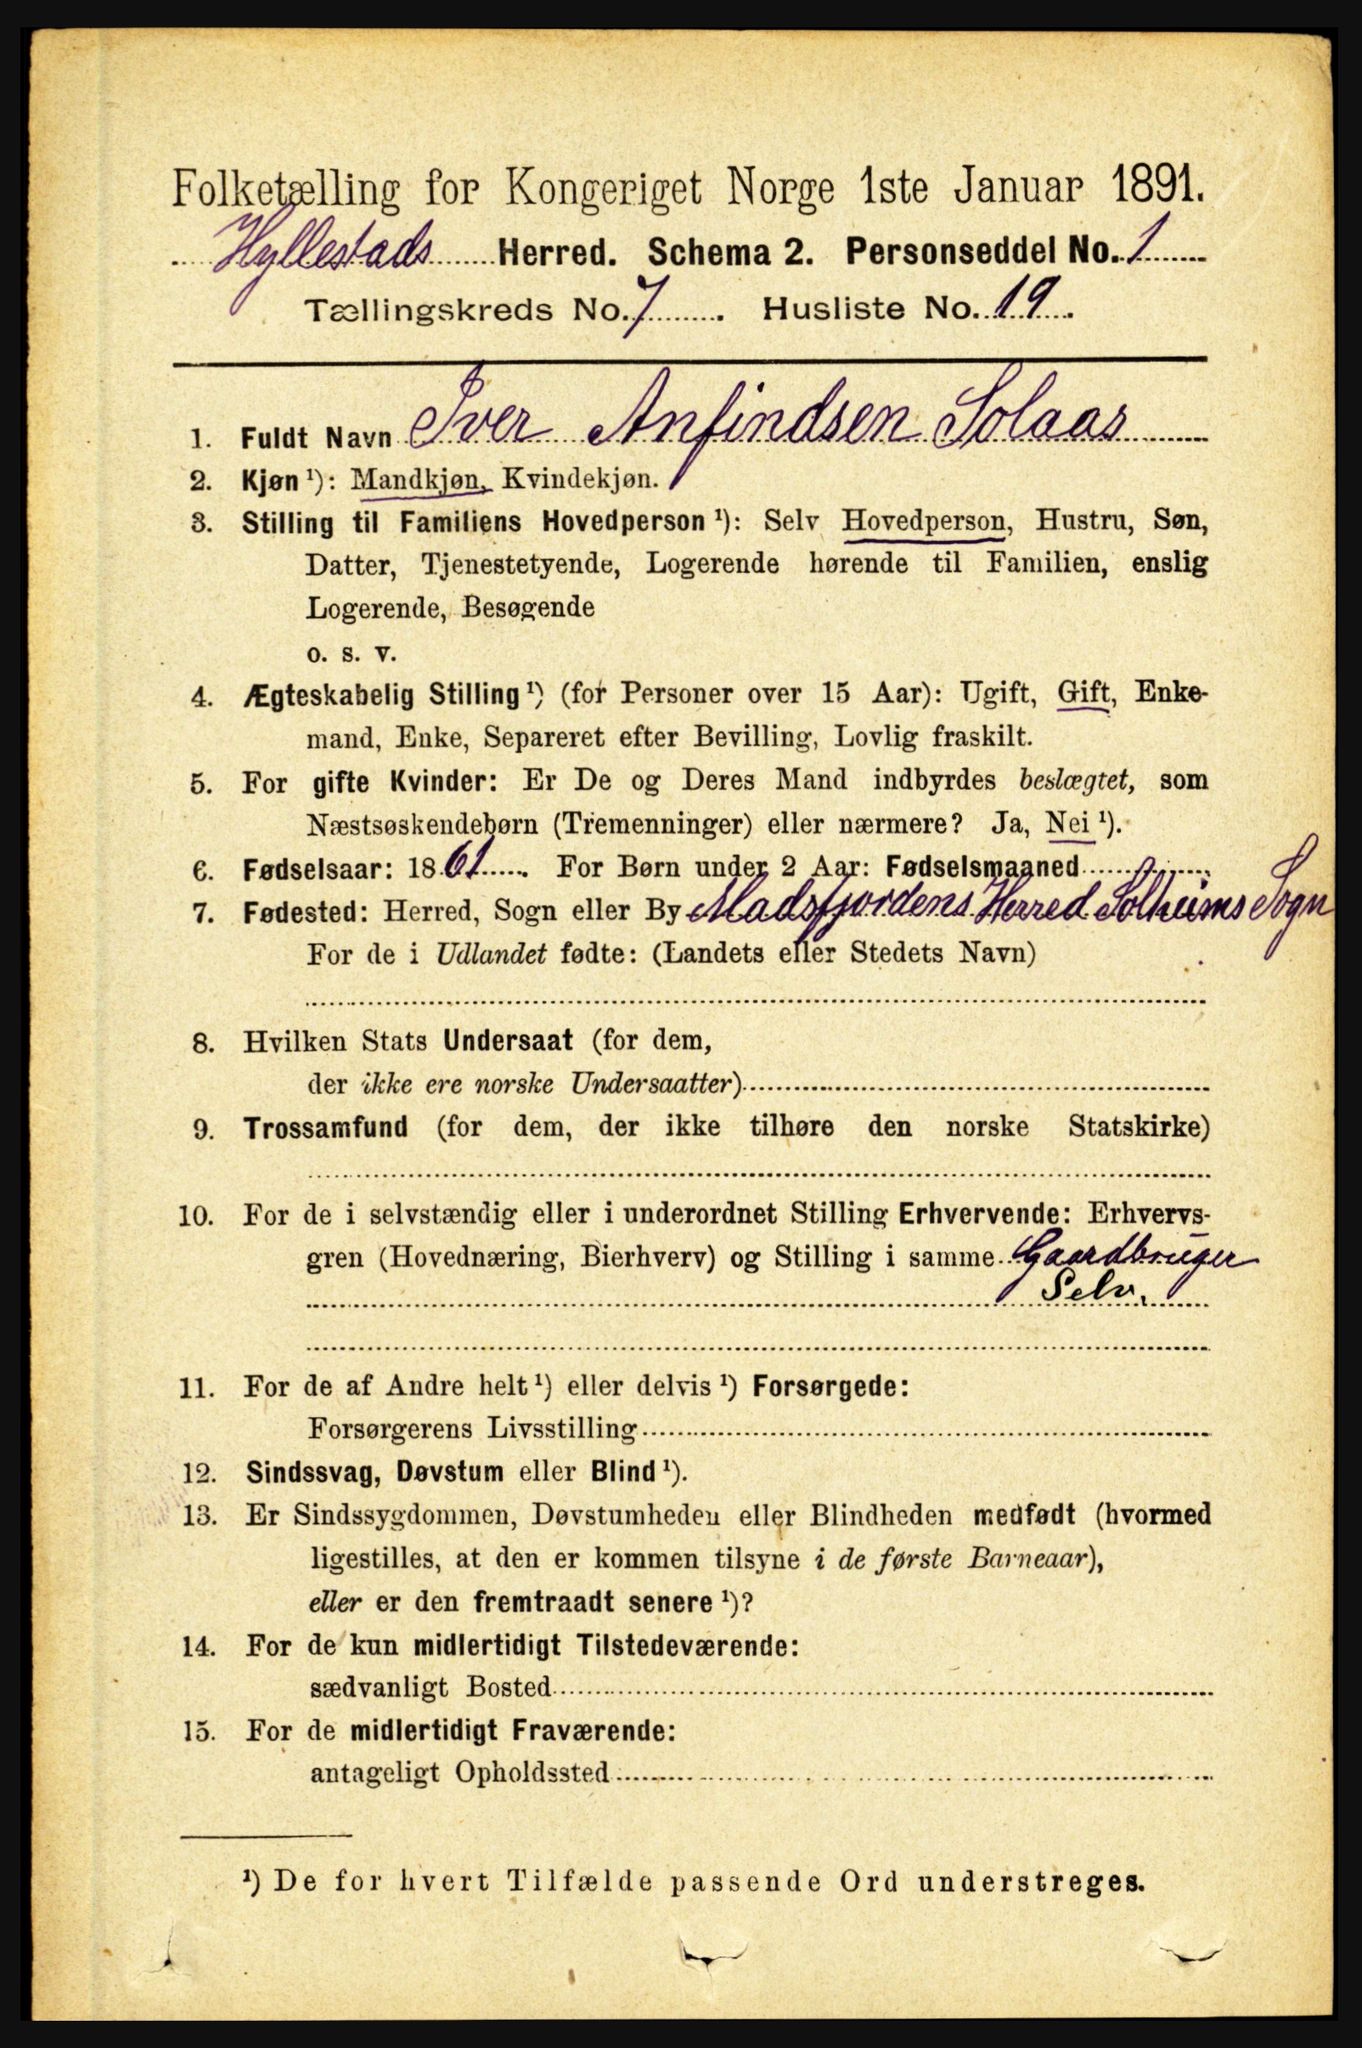 Folketælling for Kongeriget Norge 1ste Januar 1891.
Hyllestads Herred. Schema 2. Personseddel No. 1
Tællingskreds No. 7. Husliste No. 19.
1. Fuldt Navn Iver Anfindsen Solaas
2. Kjøn ¹): Mandkjøn, Kvindekjøn.
3. Stilling til Familiens Hovedperson ¹): Selv Hovedperson, Hustru, Søn,
Datter, Tjenestetyende, Logerende hørende til Familien, enslig
Logerende, Besøgende
o. s. v.
4. Ægteskabelig Stilling ¹) (for Personer over 15 Aar): Ugift, Gift, Enke-
mand, Enke, Separeret efter Bevilling, Lovlig fraskilt.
5. For gifte Kvinder: Er De og Deres Mand indbyrdes beslægtet, som
Næstsøskendebørn (Tremenninger) eller nærmere? Ja, Nei ¹).
6. Fødselsaar: 1861. For Børn under 2 Aar: Fødselsmaaned
7. Fødested: Herred, Sogn eller By Madsfjordens Herred Solheims Sogn
For de i Udlandet fødte: (Landets eller Stedets Navn)
8. Hvilken Stats Undersaat (for dem,
der ikke ere norske Undersaatter)
9. Trossamfund (for dem, der ikke tilhøre den norske Statskirke)
10. For de i selvstændig eller i underordnet Stilling Erhvervende: Erhvervs-
gren (Hovednæring, Bierhverv) og Stilling i samme Gaardbruger
Selv.
11. For de af Andre helt ¹) eller delvis ¹) Forsørgede:
Forsørgerens Livsstilling
12. Sindssvag, Døvstum eller Blind ¹).
13. Er Sindssygdommen, Døvstumheden eller Blindheden medfødt (hvormed
ligestilles, at den er kommen tilsyne i de første Barneaar),
eller er den fremtraadt senere ¹)?
14. For de kun midlertidigt Tilstedeværende:
sædvanligt Bosted
15. For de midlertidigt Fraværende:
antageligt Opholdssted
¹) De for hvert Tilfælde passende Ord understreges.